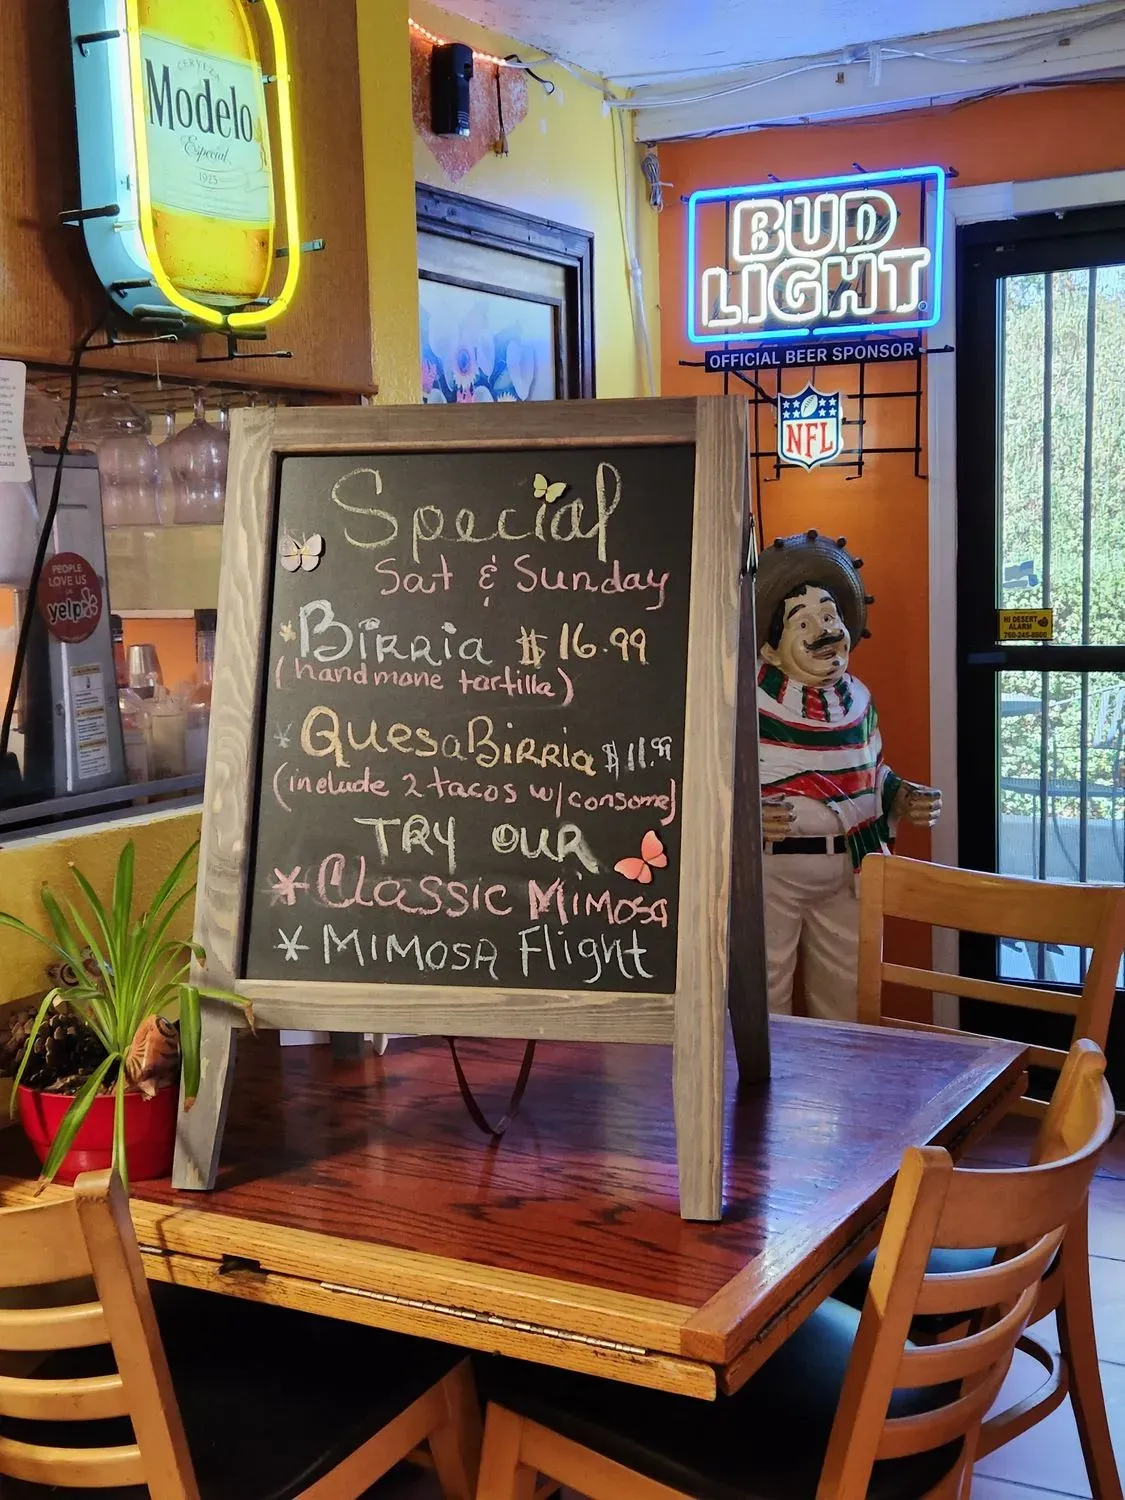 CERVEZA
Modelo
Especial
1925
BUD
LIGHT
OFFICIAL BEER SPONSOR
NFL
PEOPLE
LOVE US
on
yelp
HI DESERT
ALARM
760-245-8600
Special
Sat & Sunday
*BIRRIA $16.99
(handmane tortilla)
* QUESaBIRRIA $11.99
(include 2 tacos w/consome)
TRY OUR
* Classic MiMOSA
* MIMOSA Flight